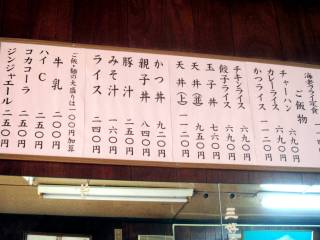 海老フライ定食
ご飯物
チャーハン 六九〇円
カレーライス 六九〇円
かつライス
チキンライス 六九〇円
餃子ライス 六九〇円
玉子丼
天丼(並) 九五〇円
天丼(上) 一一二〇円
かつ丼 九二〇円
親子丼 八四〇円
豚汁 二五〇円
みそ汁 一六〇円
ライス 二四〇円
ご飯・麺の大盛りは一〇〇円加算
牛乳 二〇〇円
ハイC 二〇〇円
コカコーラ 二五〇円
ジンジャエール 二五〇円